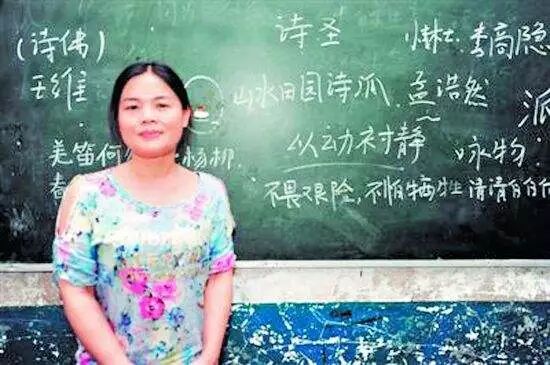 (诗佛) 诗圣 李商隐
王维 山水田园诗派. 孟浩然 派
羌笛何 杨柳. 以动衬静 咏物:
春 不畏艰险,不怕牺牲 清清白白